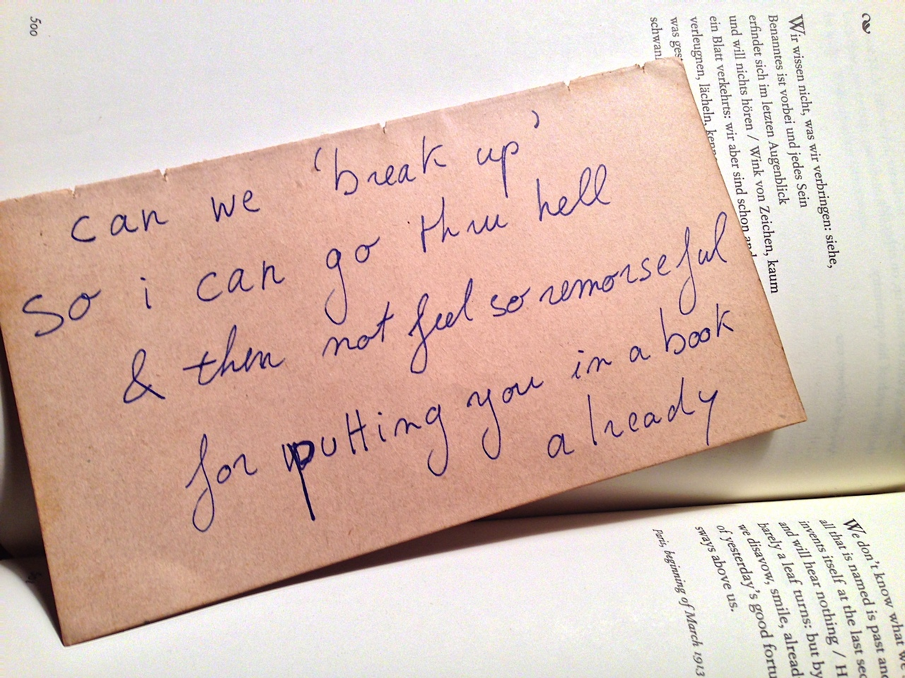 can we 'break up'
so i can go thru hell
& then not feel so remorseful
for putting you in a book
already
500
Wir wissen nicht, was wir verbringen: siehe,
Benanntes ist vorbei und jedes Sein
erfindet sich im letzten Augenblick
und will nichts hören / Wink von Zeichen, kaum
ein Blatt verkehrts: wir aber sind schon
verleugnen, lächeln,
was
We don't know what
all that is named is past and
invents itself at the last
and will hear nothing /
barely a leaf turns: but by
we disavow, smile,
of yesterday's good
sways above us.
Paris, beginning of March 1913